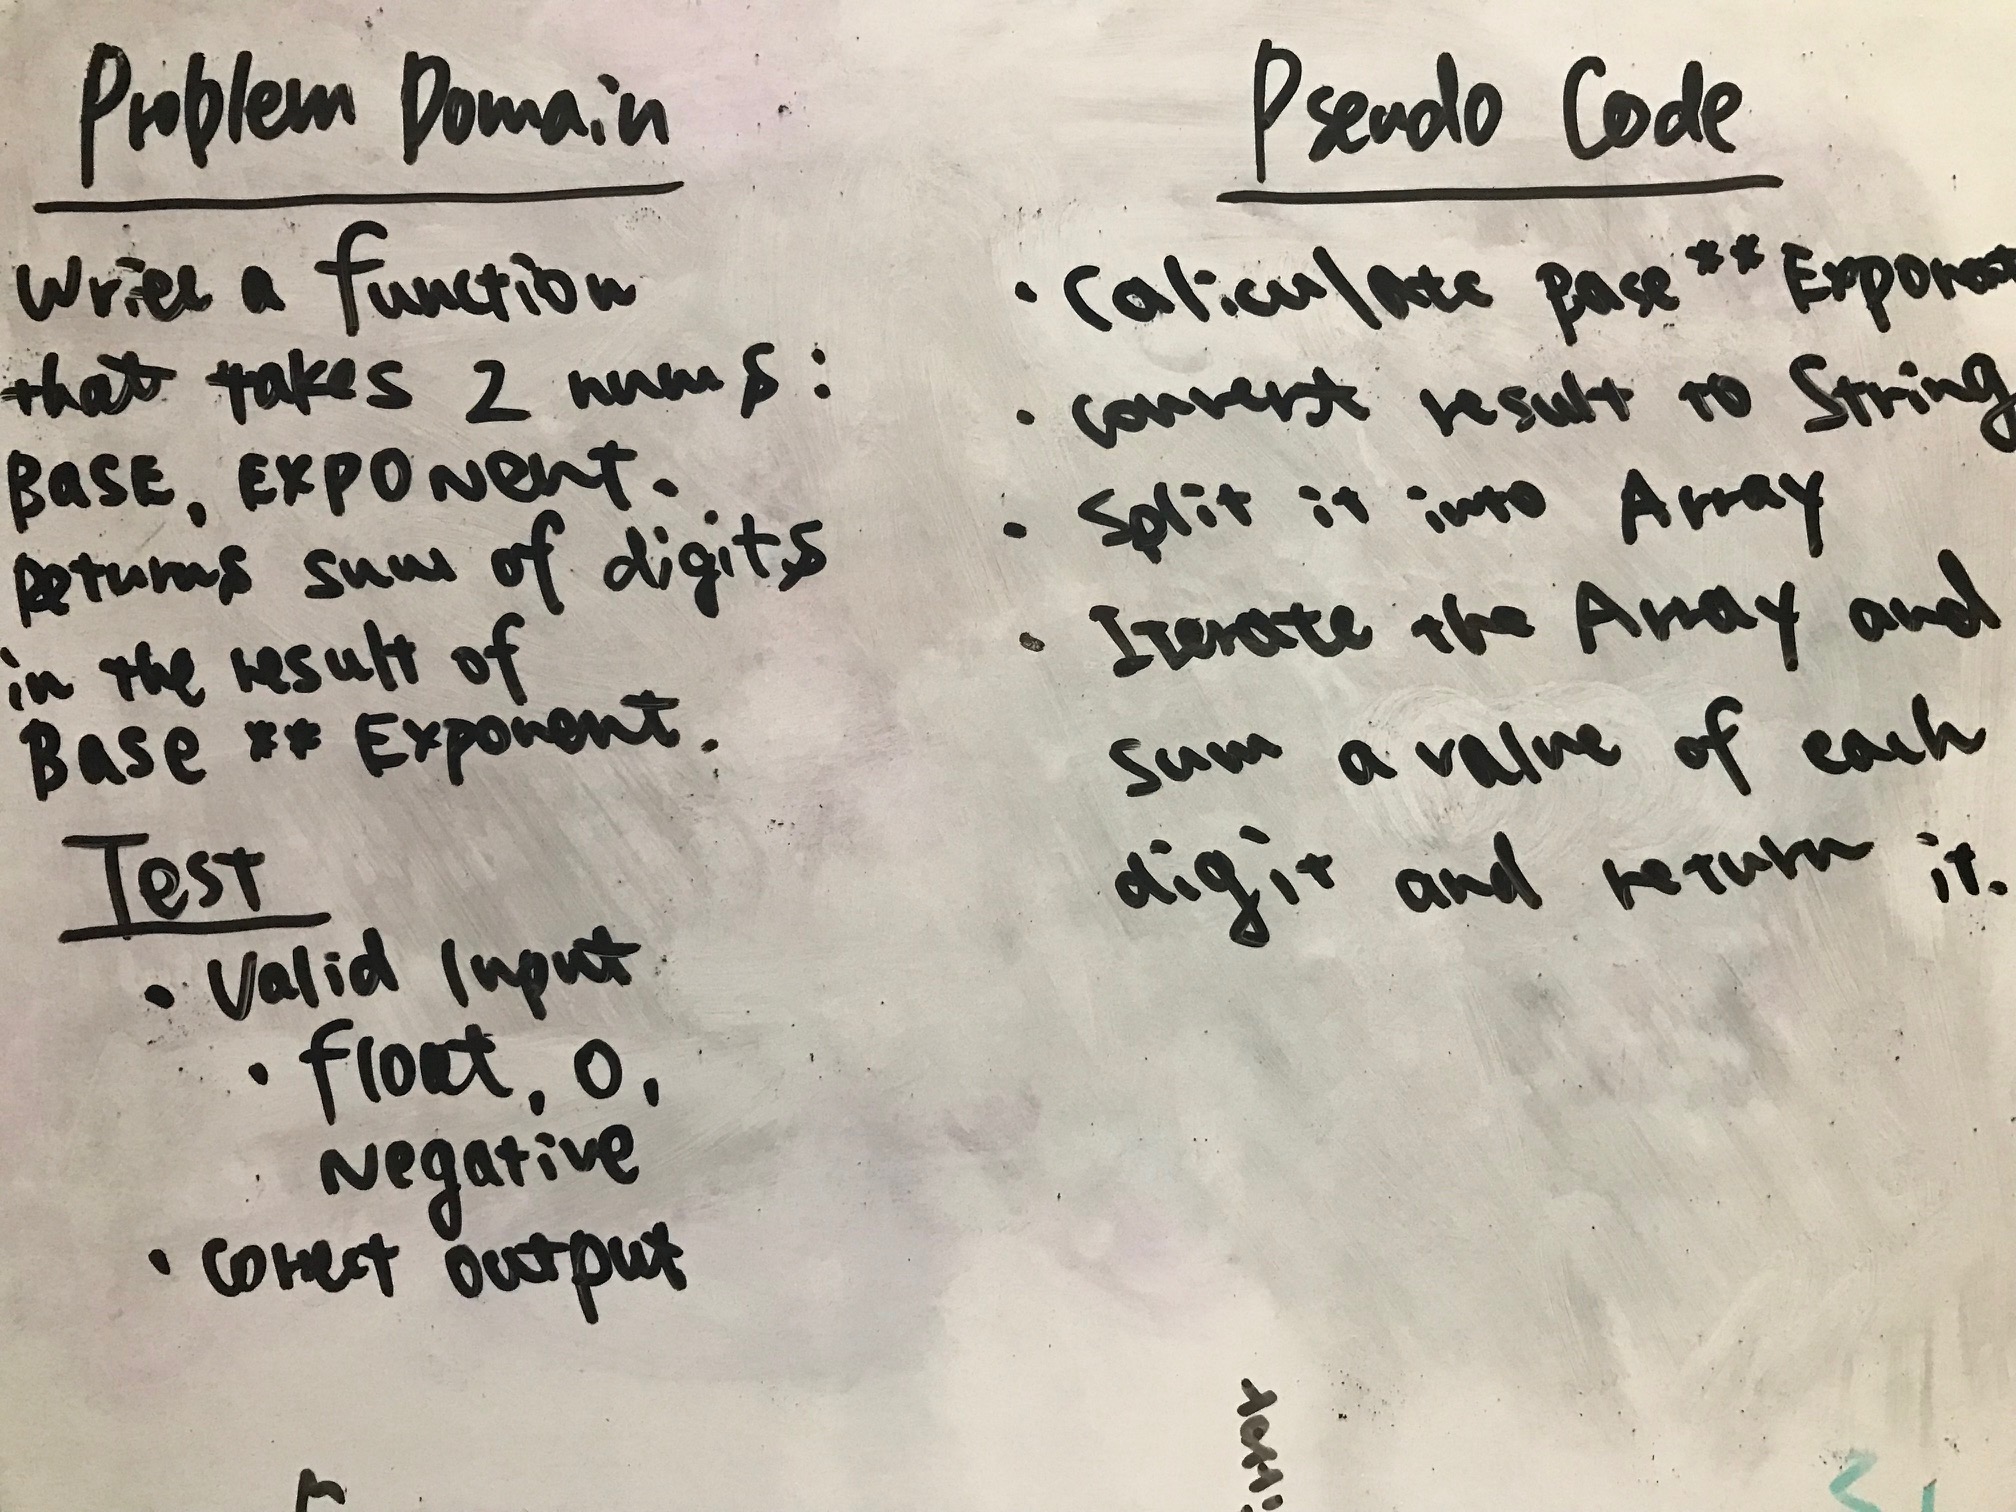 Problem Domain
Write a function
that takes 2 nums:
BASE, EXPONENT.
Returns sum of digits
in the result of
Base ** Exponent.
Test
• Valid Input
• float, 0,
Negative
• Correct output
Pseudo Code
• Caliculate Base ** Exponent
• convert result to String
• Split it into Array
• Iterate the Array and
sum a value of each
digit and return it.